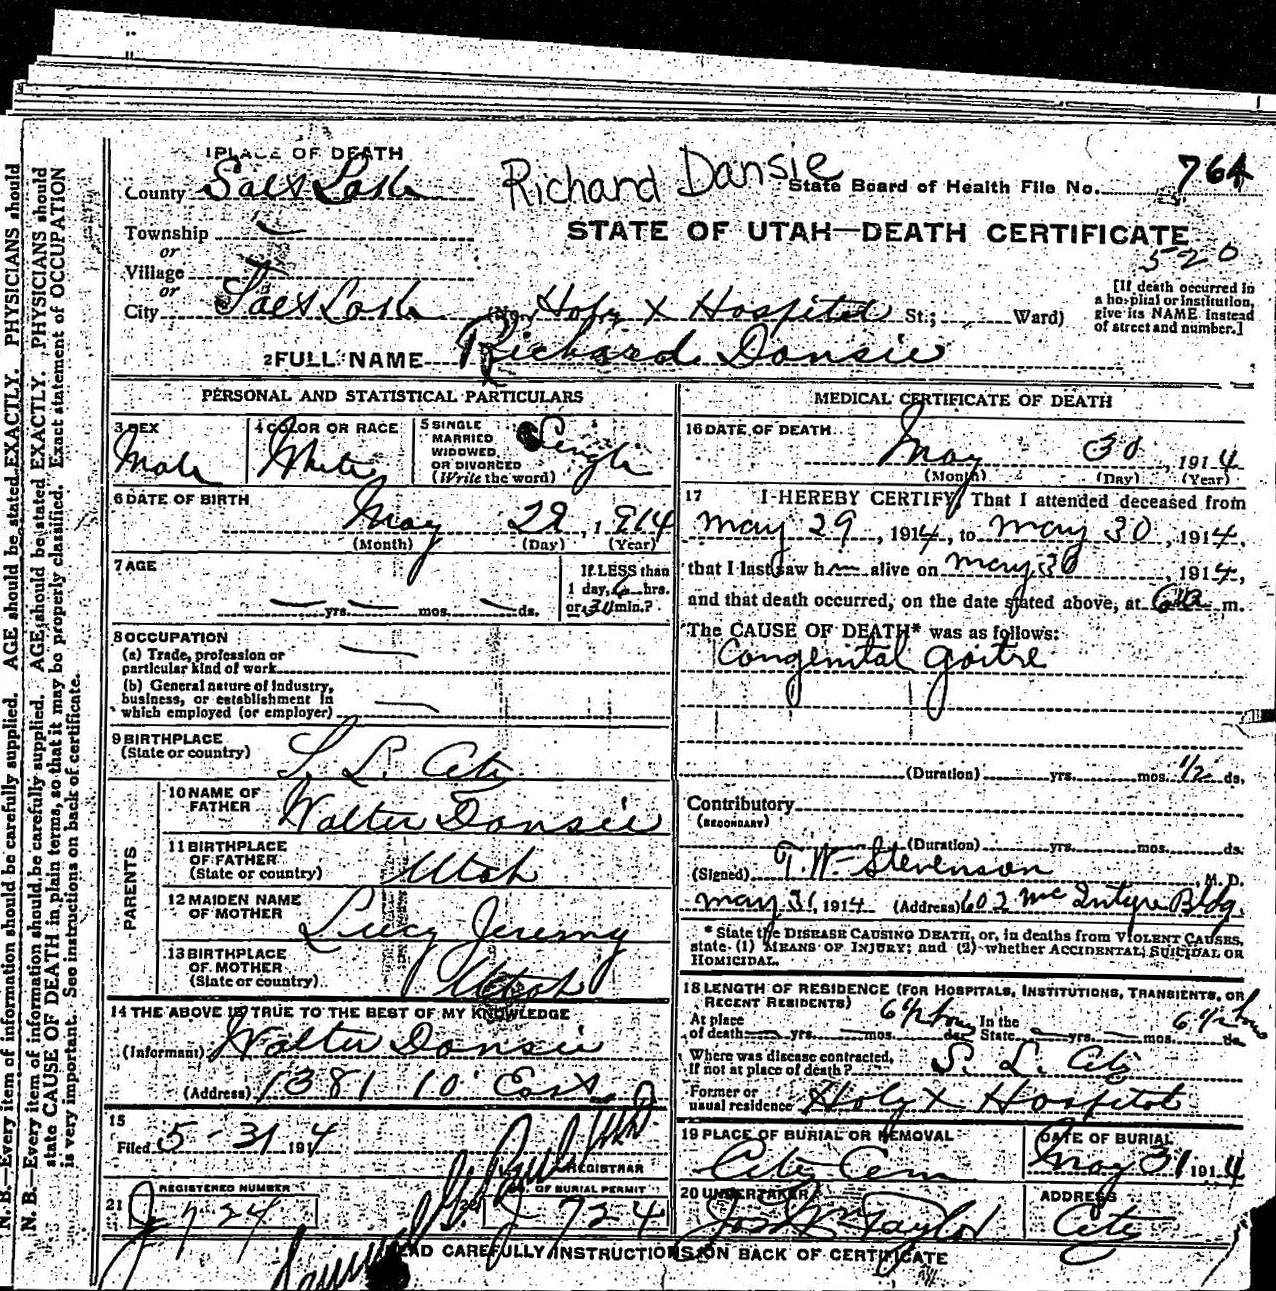 1 PLACE OF DEATH
Richard Dansie
State Board of Health File No. 764
County Salt Lake
Township —
STATE OF UTAH—DEATH CERTIFICATE
or
520
Village
or
City Salt Lake (No. Holy X Hospital St.; Ward)
[If death occurred in a hospital or institution, give its NAME instead of street and number.]
2 FULL NAME Richard Dansie
PERSONAL AND STATISTICAL PARTICULARS
3 SEX Male
4 COLOR OR RACE White
5 SINGLE MARRIED WIDOWED, OR DIVORCED (Write the word) Single
6 DATE OF BIRTH
May 29, 1914
(Month) (Day) (Year)
7 AGE
— yrs. — mos. — ds.
If LESS than
1 day, 6 hrs.
or 30 min.?
8 OCCUPATION
(a) Trade, profession or
particular kind of work —
(b) General nature of industry,
business, or establishment in
which employed (or employer) —
9 BIRTHPLACE
(State or country) S. L. City
PARENTS
10 NAME OF
FATHER Walter Dansie
11 BIRTHPLACE
OF FATHER
(State or country) Utah
12 MAIDEN NAME
OF MOTHER Lucy Jeremy
13 BIRTHPLACE
OF MOTHER
(State or country) Utah
14 THE ABOVE IS TRUE TO THE BEST OF MY KNOWLEDGE
(Informant) Walter Dansie
(Address) 1381 10 East
15
Filed 5-31 1914
REGISTRAR
21 REGISTERED NUMBER J 724
OF BURIAL PERMIT J 724
MEDICAL CERTIFICATE OF DEATH
16 DATE OF DEATH
May 30, 1914
(Month) (Day) (Year)
17 I HEREBY CERTIFY, That I attended deceased from
May 29, 1914, to May 30, 1914,
that I last saw h im alive on May 30 1914,
and that death occurred, on the date stated above, at 6 a m.
The CAUSE OF DEATH* was as follows:
Congenital Goitre
(Duration) yrs. mos. 1/2 ds.
Contributory
(SECONDARY)
(Duration) yrs. mos. ds.
(Signed) T. W. Stevenson, M. D.
May 31, 1914 (Address) 602 McIntyre Bldg.
* State the DISEASE CAUSING DEATH, or, in deaths from VIOLENT CAUSES,
state (1) MEANS OF INJURY; and (2) whether ACCIDENTAL, SUICIDAL OR
HOMICIDAL.
18 LENGTH OF RESIDENCE (FOR HOSPITALS, INSTITUTIONS, TRANSIENTS, OR
RECENT RESIDENTS)
At place of death — yrs. — mos. 6 1/2 hours ds. In the State — yrs. — mos. 6 1/2 hours ds.
Where was disease contracted,
if not at place of death? S. L. City
Former or
usual residence Holy X Hospital
19 PLACE OF BURIAL OR REMOVAL
City Cem
DATE OF BURIAL
May 31 1914
20 UNDERTAKER
Jos Wm Taylor
ADDRESS
City
READ CAREFULLY INSTRUCTIONS ON BACK OF CERTIFICATE
N. B.—Every item of information should be carefully supplied. AGE should be stated EXACTLY. PHYSICIANS should
N. B.—Every item of information should be carefully supplied. AGE should be stated EXACTLY. PHYSICIANS should
state CAUSE OF DEATH in plain terms, so that it may be properly classified. Exact statement of OCCUPATION
is very important. See instructions on back of certificate.